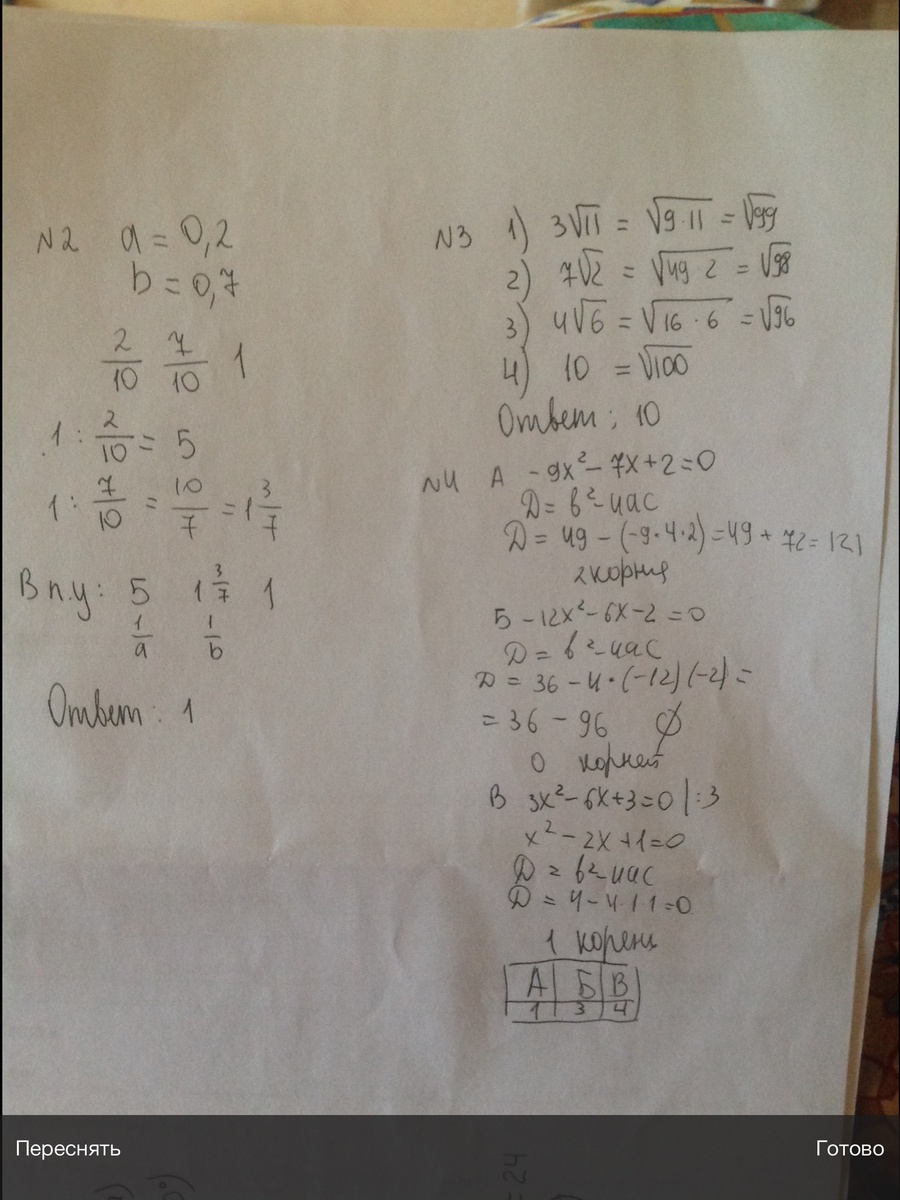 N2 a = 0,2
b = 0,7
2/10 7/10 1
1 : 2/10 = 5
1 : 7/10 = 10/7 = 1 3/7
В п.у: 5 1 3/7 1
1/a 1/b
Ответ: 1
N3 1) 3√11 = √9·11 = √99
2) 7√2 = √49·2 = √98
3) 4√6 = √16·6 = √96
4) 10 = √100
Ответ: 10
N4 А -9x²-7x+2=0
Д = b²-4ac
Д = 49 - (-9·4·2) = 49 + 72 = 121
2 корня
Б -12x²-6x-2=0
Д = b²-4ac
Д = 36 - 4·(-12)(-2) =
= 36 - 96 ∅
0 корней
В 3x²-6x+3=0 |:3
x²-2x+1=0
Д = b²-4ac
Д = 4-4·1·1=0
1 корень
А Б В
1 3 4
Переснять Готово
= 24